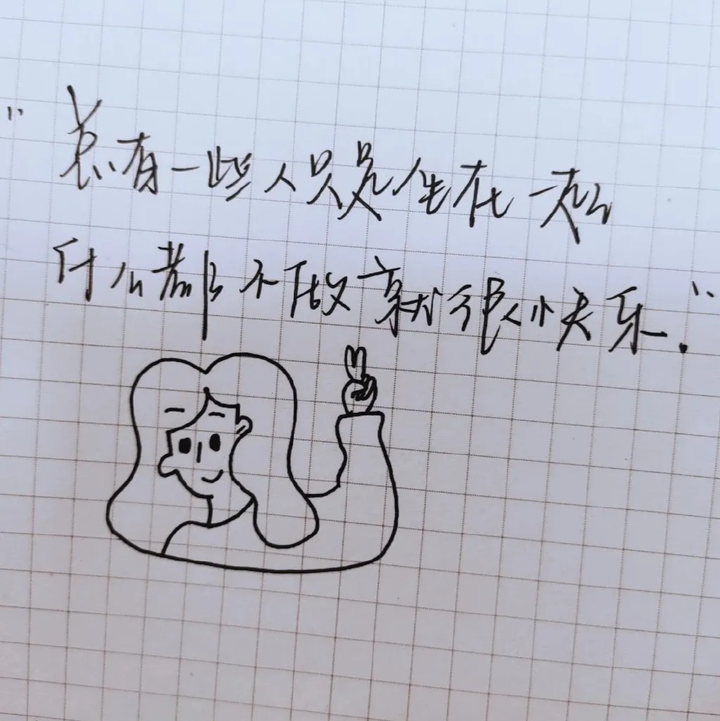 "总有一些人只是坐在一起
什么都不做就很快乐."